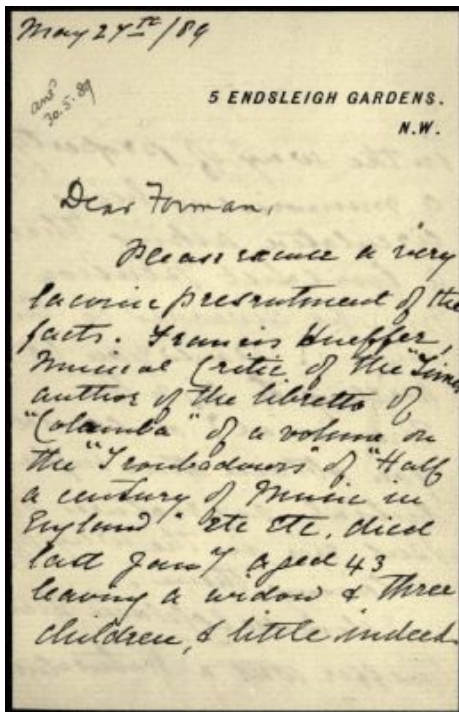 May 27th/89
ansd
30.5.89
5 ENDSLEIGH GARDENS.
N.W.
Dear Forman,
Please excuse a very
laconic presentment of the
facts. Francis Hueffer,
Musical Critic of the "Times
author of the libretto of
"Colomba" of a volume on
the "Troubadours" of "Half
a century of Music in
England" etc etc. died
last Jany aged 43
leaving a widow & three
children, & little indeed